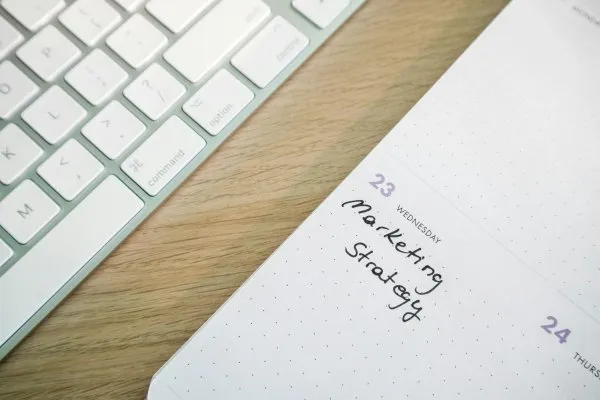 MONDAY
23
WEDNESDAY
Marketing
Strategy
24
THURS
O
P
L
K
M
:
;
"
'
?
/
>
.
<
,
option
command